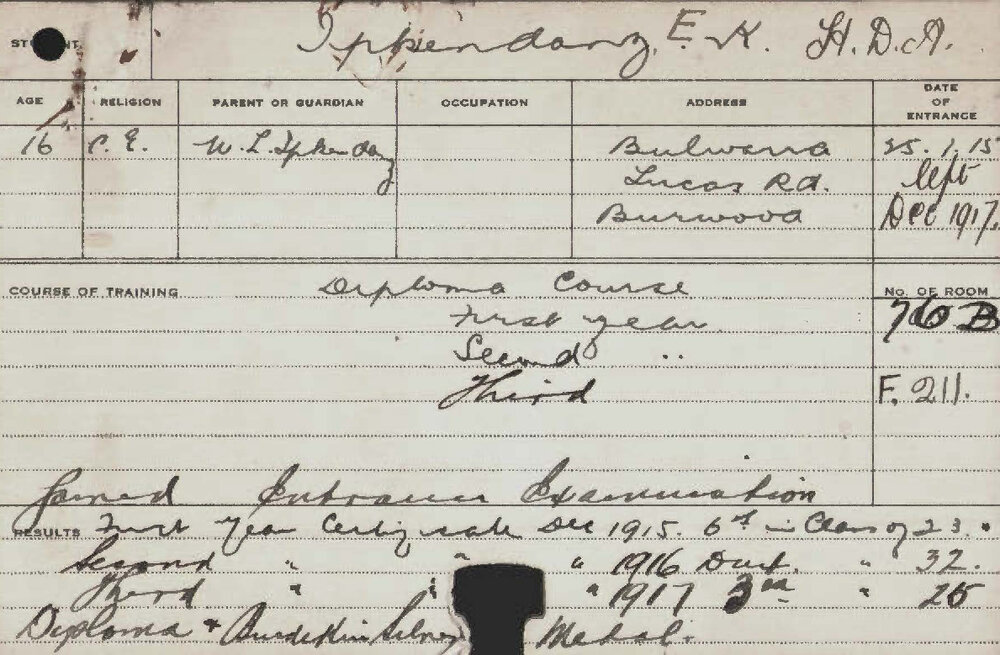 STUDENT. Ipkendanz, E. K. H.D.A.
AGE RELIGION PARENT OR GUARDIAN OCCUPATION ADDRESS DATE OF ENTRANCE
16 C.E. W. L. Ipkendanz Bulwarra 25.1.15
Lucas Rd. left
Burwood Dec 1917.
COURSE OF TRAINING Diploma Course No. OF ROOM
First year 76 B
Second "
Third F. 211.
Passed Entrance Examination
RESULTS First Year Certificate Dec 1915. 6th in Class of 23.
Second " " " 1916 " 32.
Third " " " 1917 3rd " 25
Diploma + Burdekin Silver Medal.